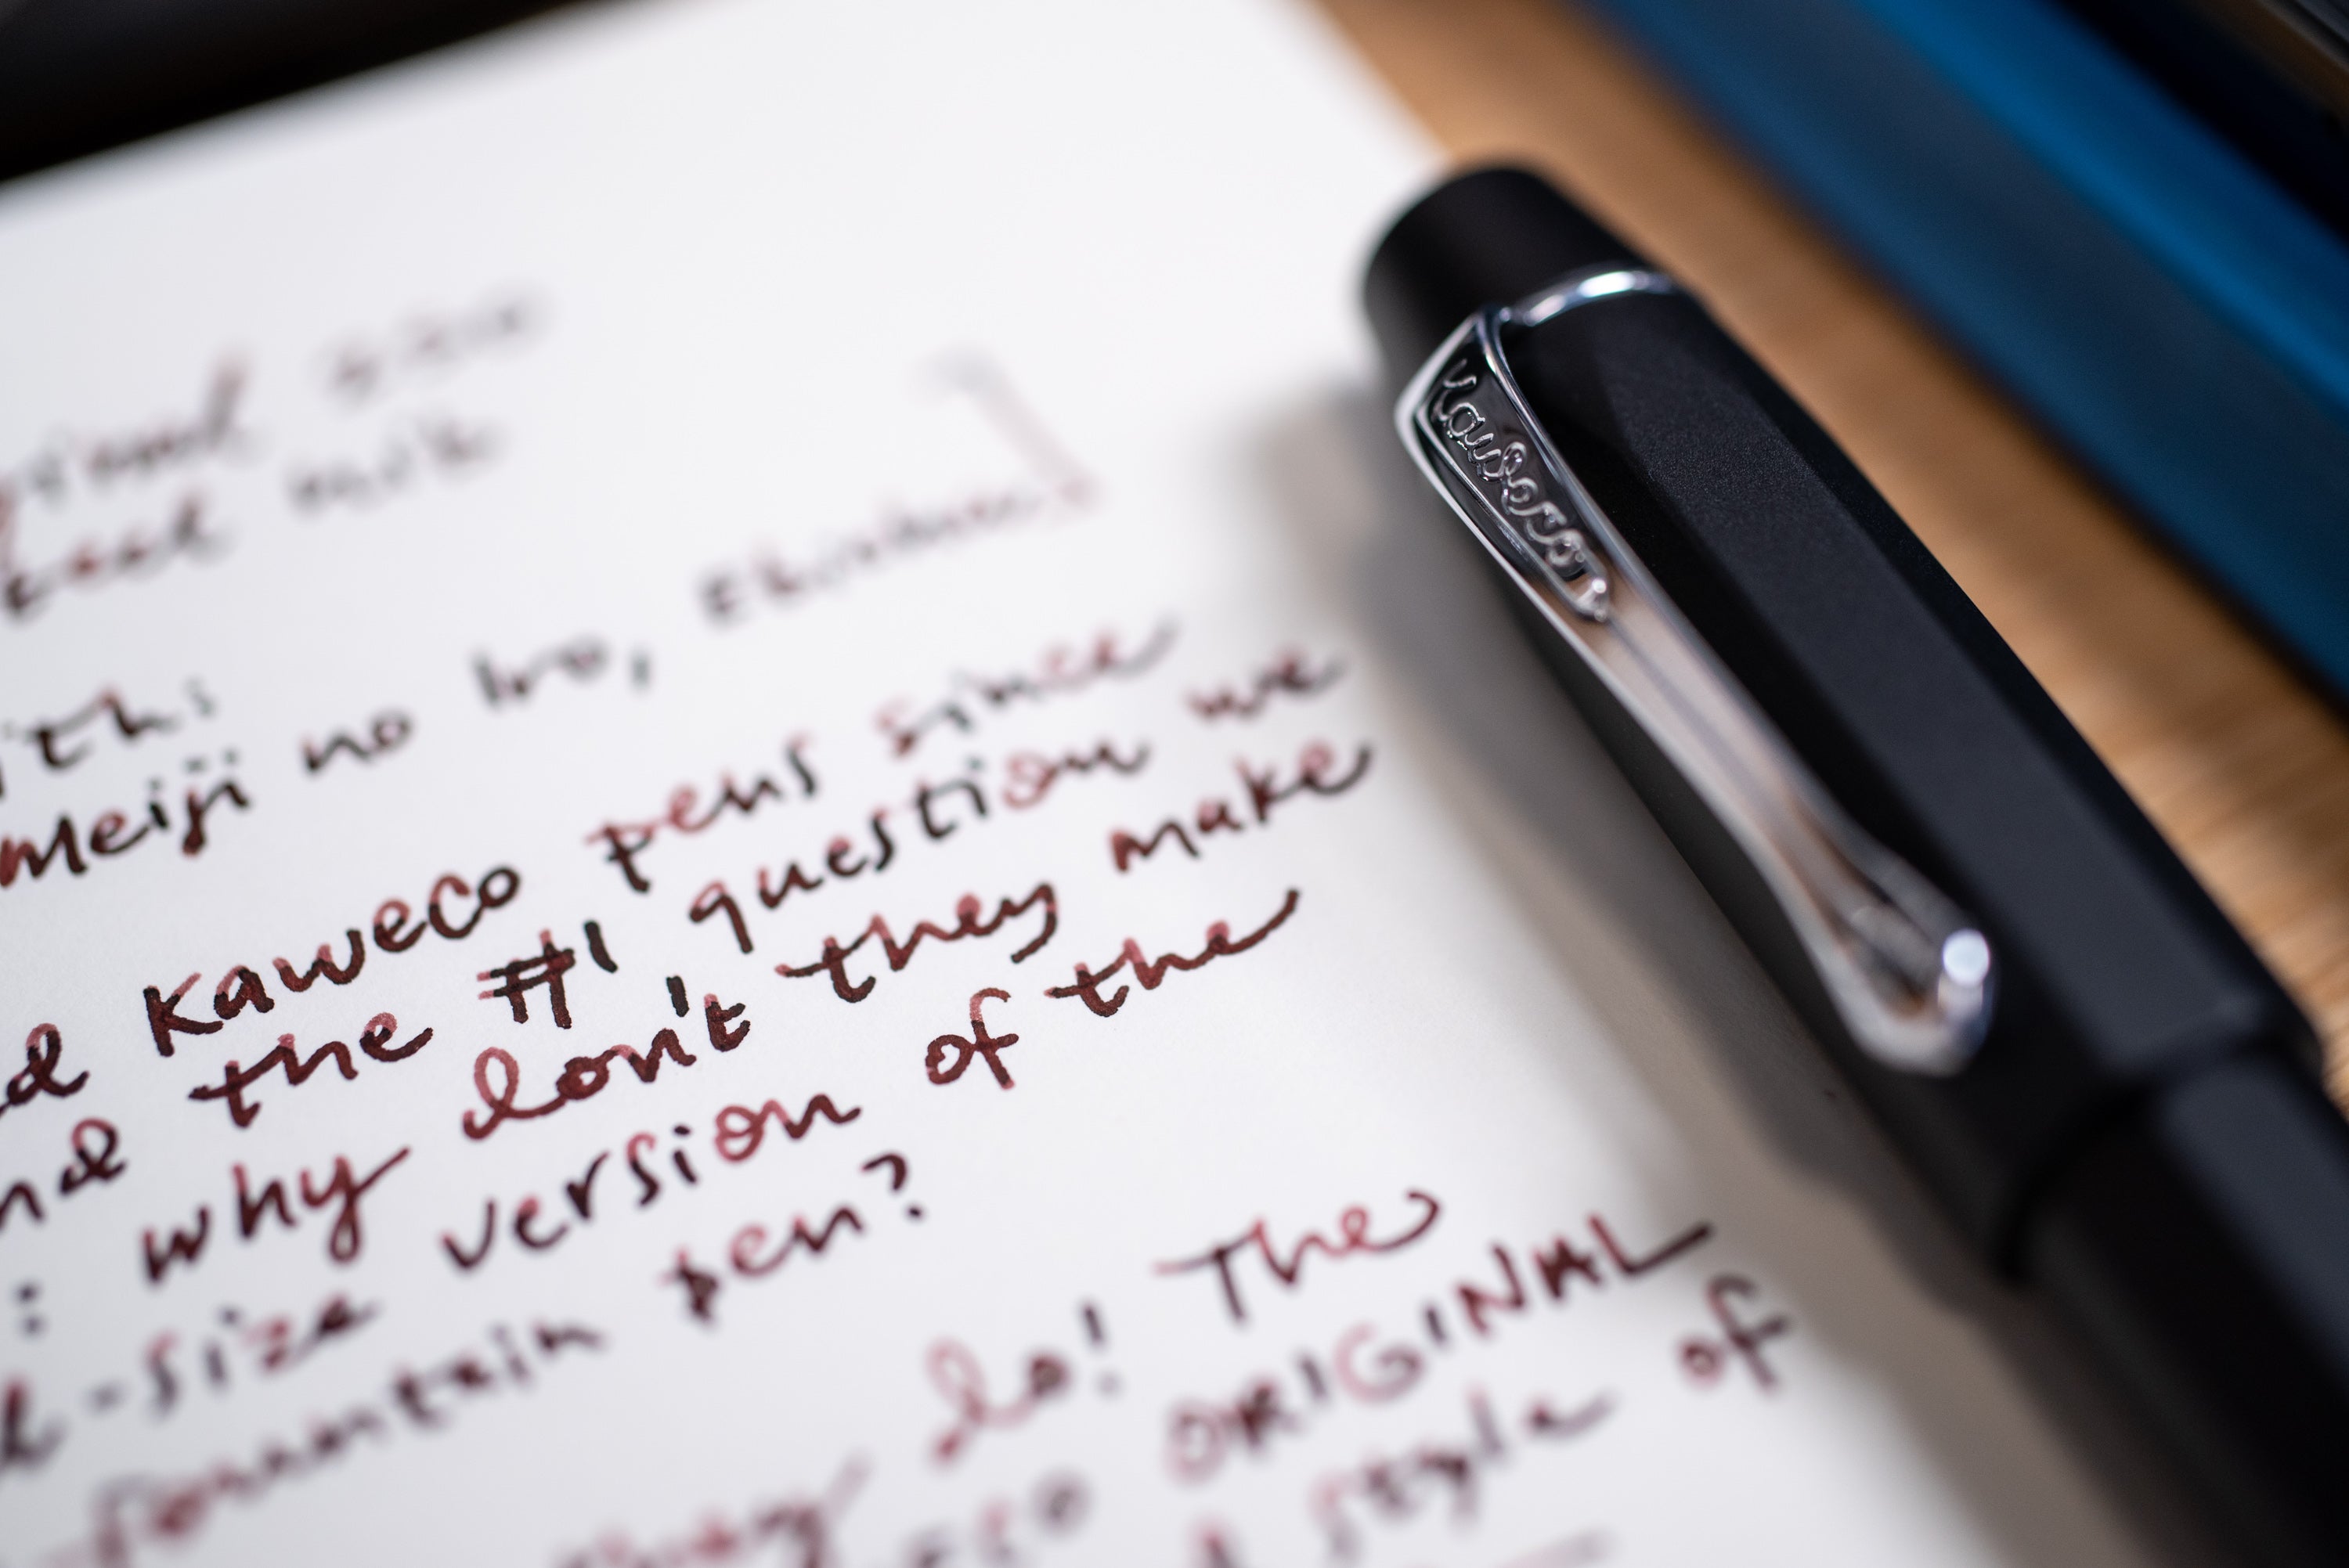 ith:
Meiji no Iro,
d Kaweco pens since
nd the #1 question we
: why don't they make
-size version of the
fountain pen?
do! The
ORIGINAL
style of
Kaweco